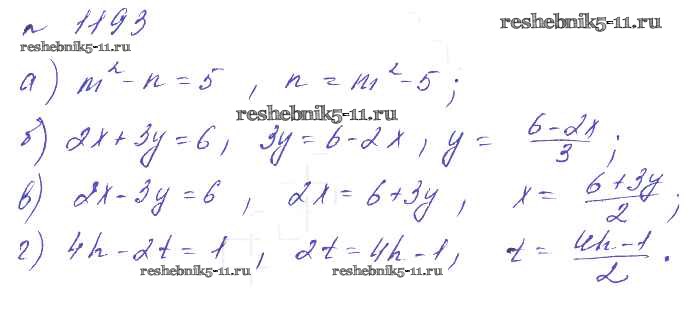 № 1193
reshebnik5-11.ru
reshebnik5-11.ru
а) m² - n = 5, n = m² - 5;
reshebnik5-11.ru
б) 2x + 3y = 6, 3y = 6 - 2x, y = (6 - 2x)/3;
в) 2x - 3y = 6, 2x = 6 + 3y, x = (6 + 3y)/2;
г) 4h - 2t = 1, 2t = 4h - 1, t = (4h - 1)/2.
reshebnik5-11.ru
reshebnik5-11.ru